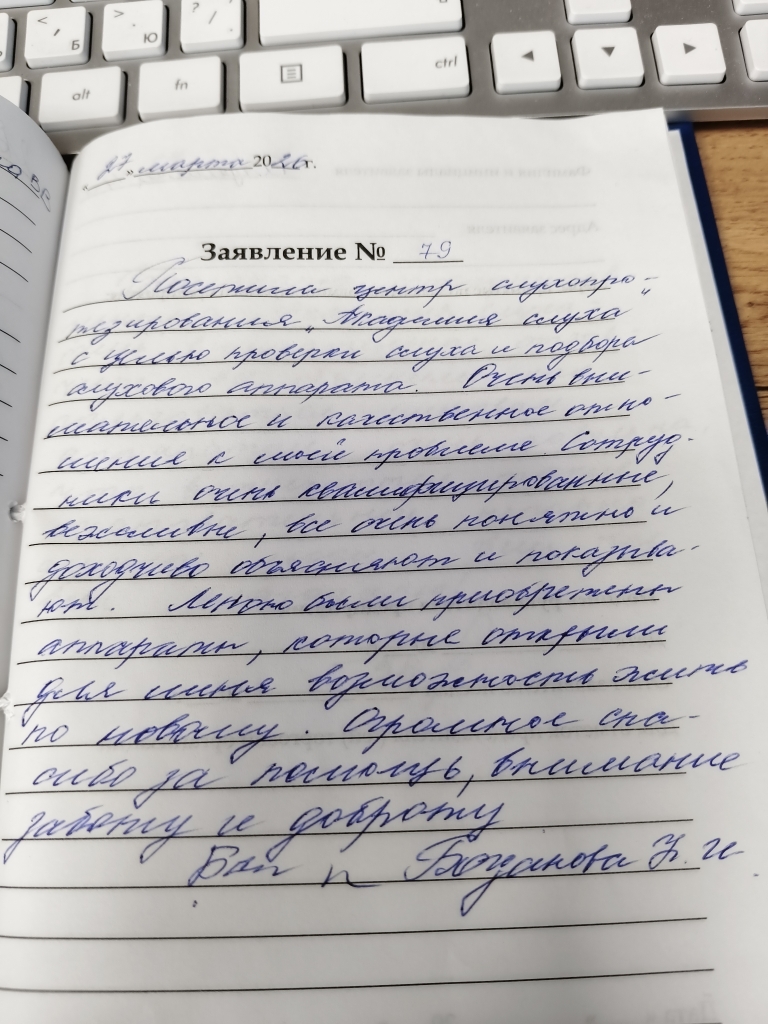 < , Б
> . Ю
? / .
alt
fn
ctrl
◄
▼
►
"27" марта 2026г.
Заявление № 79
Посетила центр слухопро-
тезирования „Академия слуха"
с целью проверки слуха и подбора
слухового аппарата. Очень вни-
мательное и качественное отно-
шение к моей проблеме. Сотруд-
ники очень квалифицированные,
вежливые, все очень понятно и
доходчиво объясняют и показыва-
ют. Мною были приобретены
аппараты, которые открыли
для меня возможность жить
по новому. Огромное спа-
сибо за помощь, внимание
заботу и доброту
Богданова